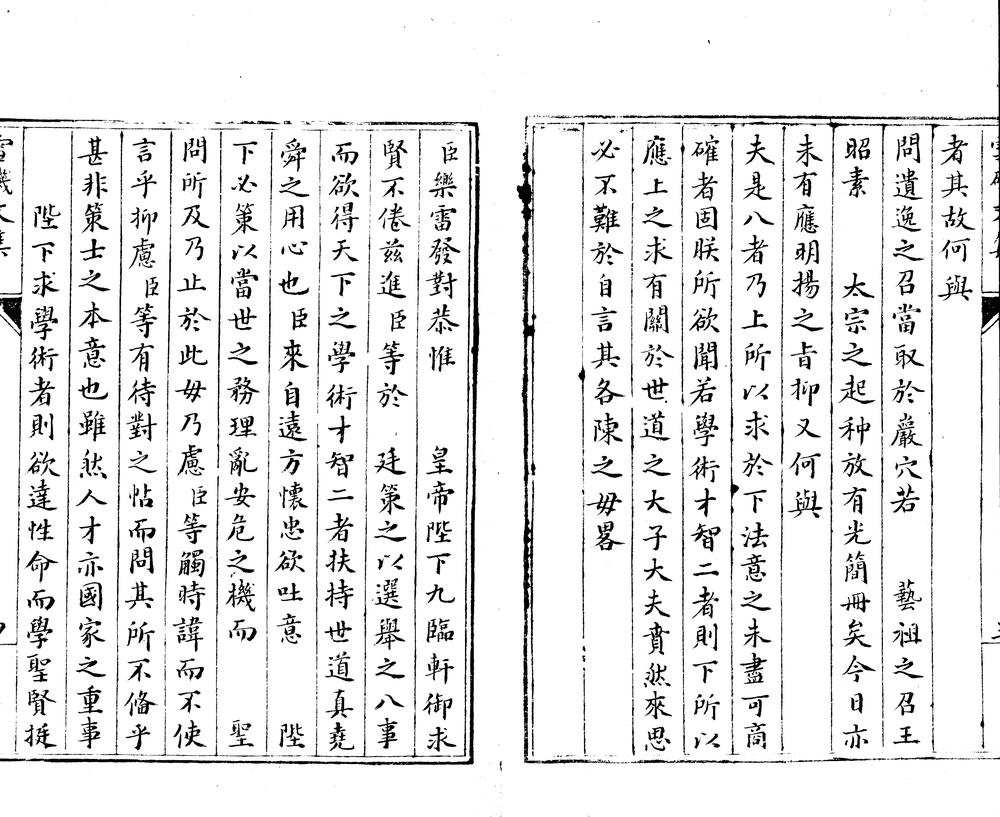 者其故何與
問遺逸之召當取於巖穴若　藝祖之召王
昭素　太宗之起种放有光簡冊矣今日亦
未有應明揚之旨抑又何與
夫是八者乃上所以求於下法意之未盡可商
確者固朕所欲聞若學術才智二者則下所以
應上之求有關於世道之大子大夫賁然來思
必不難於自言其各陳之毋畧
臣樂雷發對恭惟　皇帝陛下九臨軒御求
賢不倦兹進臣等於　廷策之以選舉之八事
而欲得天下之學術才智二者扶持世道真堯
舜之用心也臣來自遠方懷忠欲吐意　陛
下必策以當世之務理亂安危之機而　聖
問所及乃止於此毋乃慮臣等觸時諱而不使
言乎抑慮臣等有待對之帖而問其所不俻乎
甚非策士之本意也雖然人才亦國家之重事
陛下求學術者則欲達性命而學聖賢挺